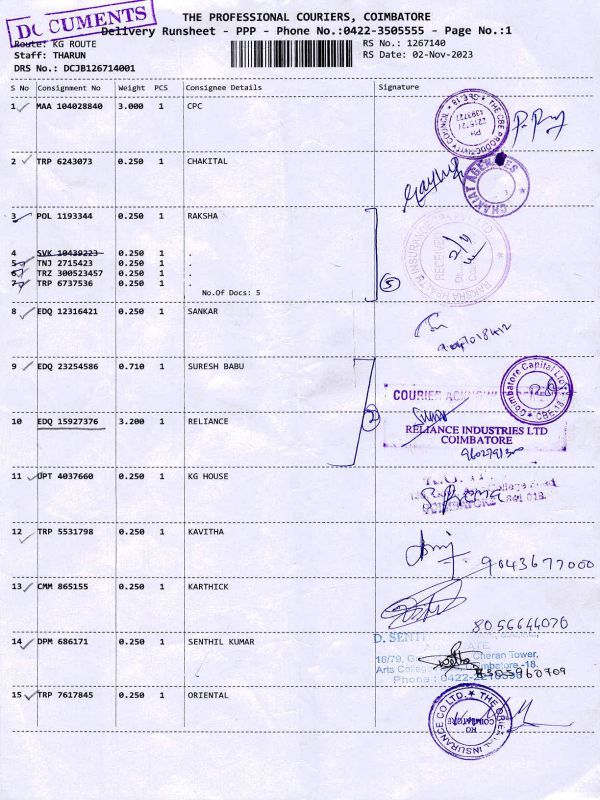 DOCUMENTS
THE PROFESSIONAL COURIERS, COIMBATORE
Delivery Runsheet - PPP - Phone No.:0422-3505555 - Page No.:1
Route: KG ROUTE
RS No.: 1267140
Staff: THARUN
RS Date: 02-Nov-2023
DRS No.: DCJB126714001
S No Consignment No Weight PCS Consignee Details Signature
1 MAA 104028840 3.000 1 CPC
2 TRP 6243073 0.250 1 CHAKITAL
3 POL 1193344 0.250 1 RAKSHA
4 SVK 10439223 0.250 1 .
5 TNJ 2715423 0.250 1 .
6 TRZ 300523457 0.250 1 .
7 TRP 6737536 0.250 1 .
No.Of Docs: 5
5
8 EDQ 12316421 0.250 1 SANKAR
9 EDQ 23254586 0.710 1 SURESH BABU
Coimbatore Capital Ltd
10 EDQ 15927376 3.200 1 RELIANCE
2
RELIANCE INDUSTRIES LTD
COIMBATORE
11 UPT 4037660 0.250 1 KG HOUSE
12 TRP 5531798 0.250 1 KAVITHA
9043677000
13 CMM 865155 0.250 1 KARTHICK
8056644070
14 DPM 686171 0.250 1 SENTHIL KUMAR
Cheran Tower,
15 TRP 7617845 0.250 1 ORIENTAL
THE ORIENTAL INSURANCE CO LTD.
RO
COIMBATORE